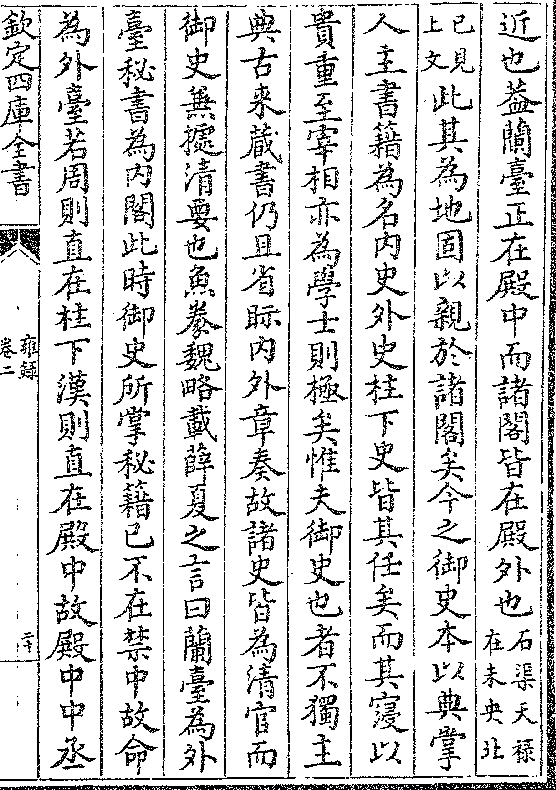 近也葢蘭臺正在殿中而諸閣皆在殿外也石渠天祿在未央北
已見上文此其為地固以親於諸閣矣今之御史本以典掌
人主書籍為名内史外史柱下史皆其任矣而其寖以
貴重至宰相亦為學士則極矣惟夫御史也者不獨主
典古来蔵書仍且省眎内外章奏故諸史皆為清官而
御史無擬清要也魚豢魏略載薛夏之言曰蘭臺為外
臺秘書為内閣此時御史所掌秘籍已不在禁中故命
為外臺若周則直在柱下漢則直在殿中故殿中中丞
欽定四庫全書
雍録
卷二
二十